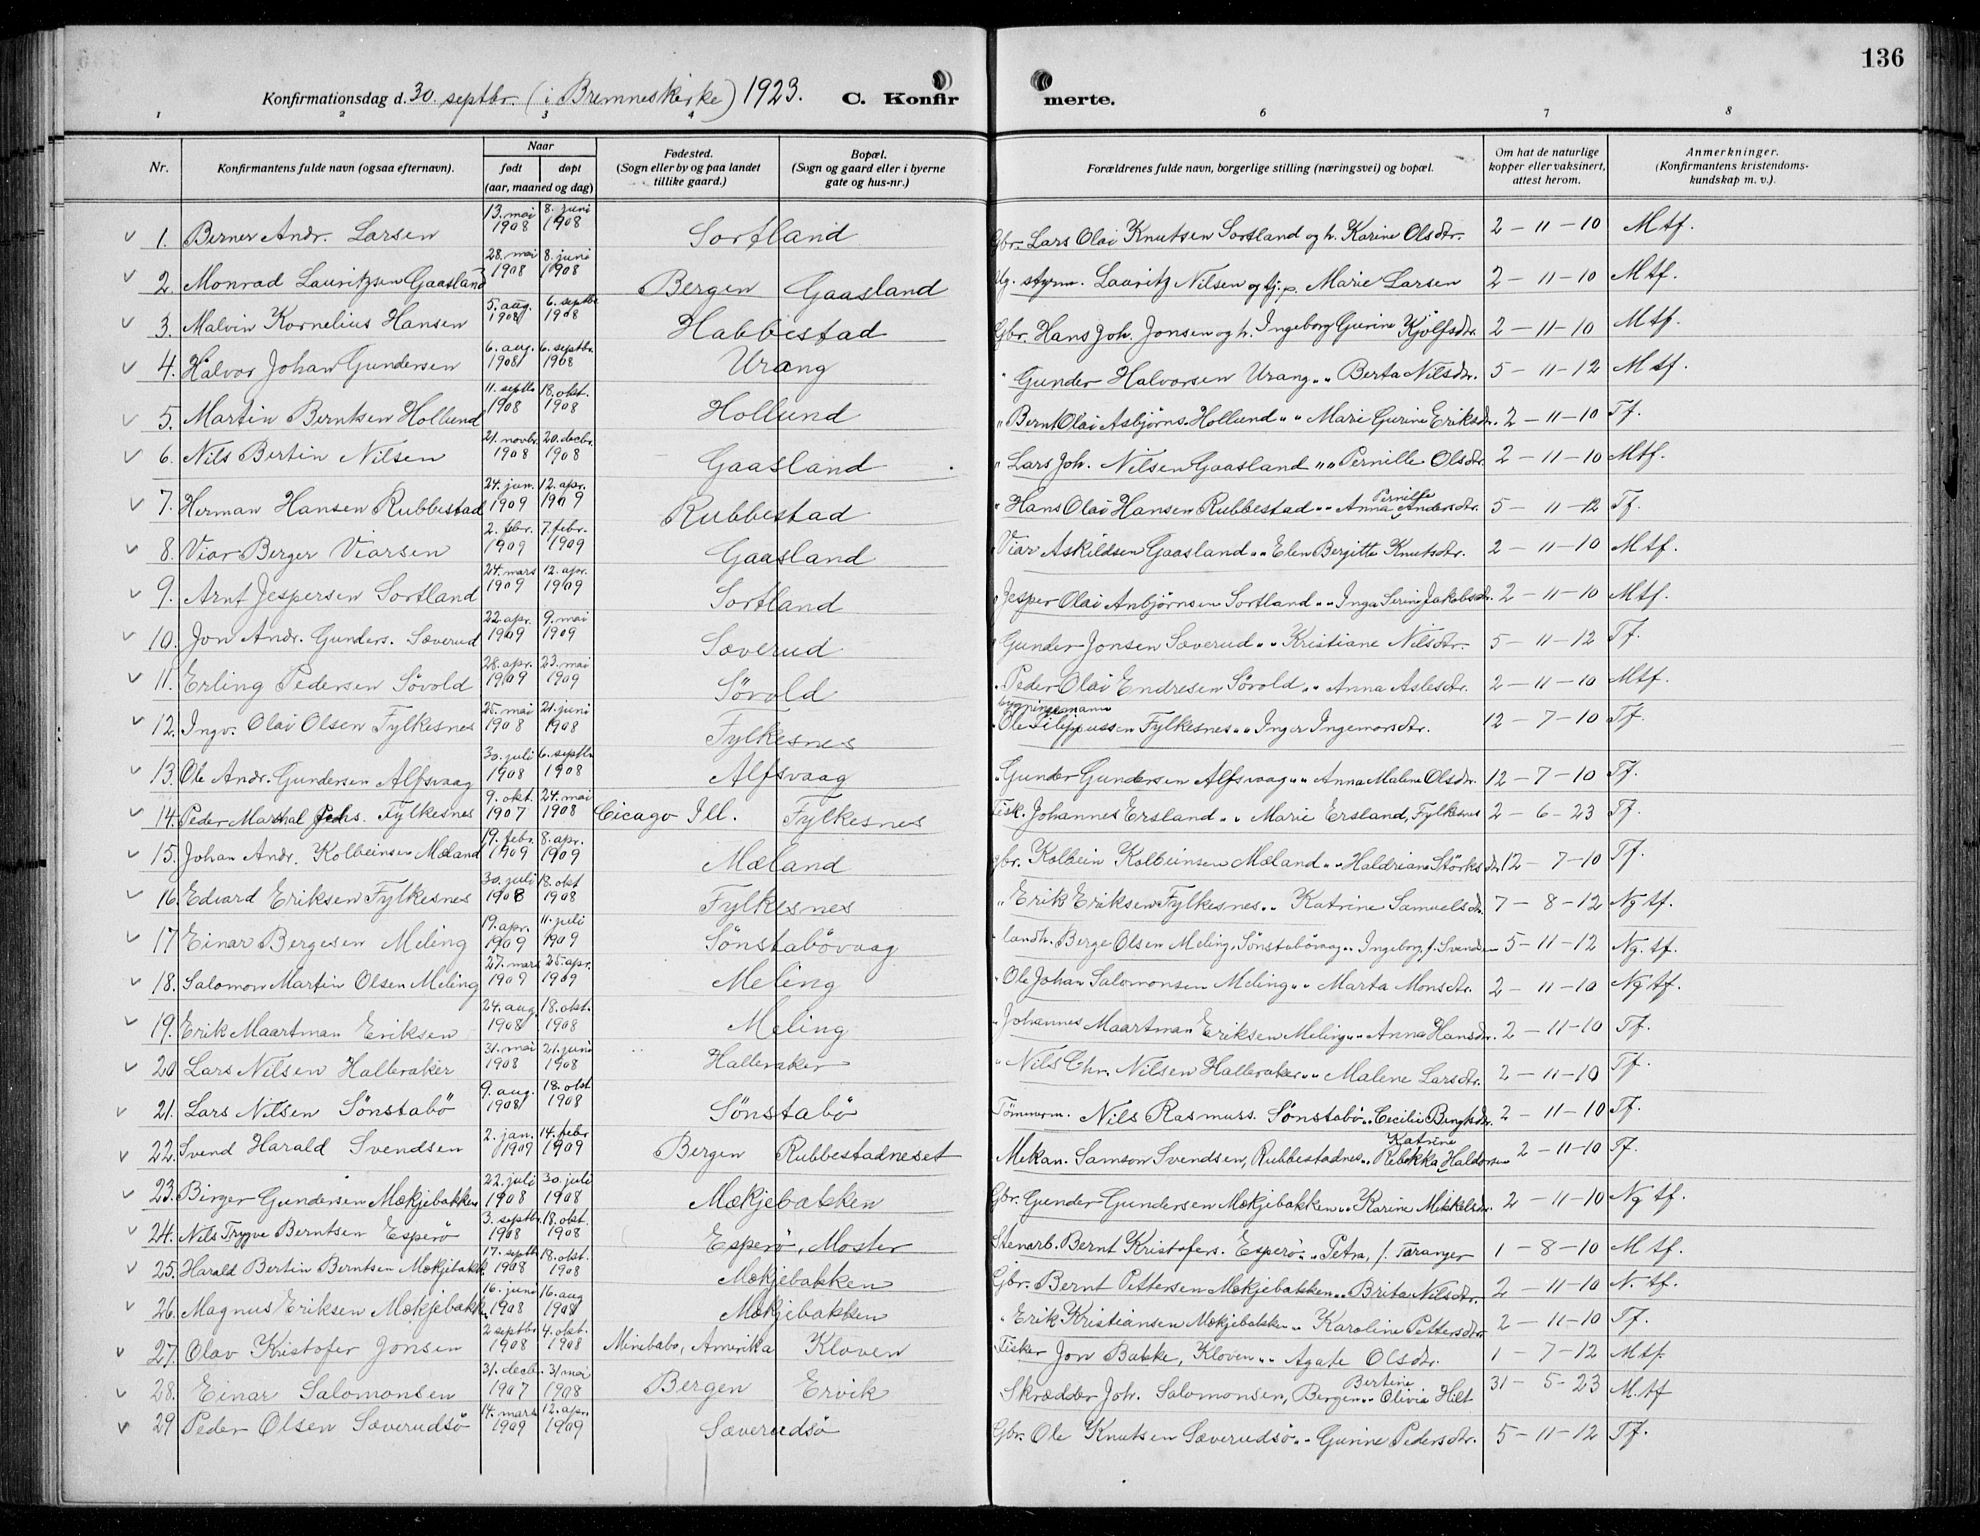 136
Konfirmationsdag d. 30. septbr. (i Bremneskirke) 1923. C. Konfirmerte.
1 2 3 4 6 7 8
Nr. Konfirmantens fulde navn (ogsaa efternavn). Naar født døpt (aar, maaned og dag) Fødested. (Sogn eller by og paa landet tillike gaard.) Bopæl. (Sogn og gaard eller i byerne gate og hus-nr.) Forældrenes fulde navn, borgerlige stilling (næringsvei) og bopæl. Om hat de naturlige kopper eller vaksinert, attest herom. Anmerkninger. (Konfirmantens kristendomskundskap m. v.).
1. Berner Andr. Larsen 13. mai 1908 8. juni 1908 Sortland Gbr. Lars Olai Knutsen Sortland og h. Karine Olsdtr. 2-11-10 Mtf.
2. Monrad Lauritzsen Gaasland 28. mai 1908 8. juni 1908 Bergen Gaasland Ug. styrm. Lauritz Nilsen og tj.p. Marie Larsen 2-11-10 Mtf.
3. Malvin Kornelius Hansen 5. aug. 1908 6. septbr 1908 Habbestad Gbr. Hans Joh. Jonsen og h. Ingeborg Gurine Kjølfsdtr. 2-11-10 Mtf.
4. Halvor Johan Gundersen 6. aug. 1908 6. septbr. 1908 Urang " Gunder Halvorsen Urang " " Berta Nilsdtr. 5-11-12 Mtf.
5. Martin Berntsen Hollund 11. septbr 1908 18. okt. 1908 Hollund " Bernt Olai Asbjørns. Hollund " " Marie Gurine Eriksdtr. 2-11-10 Tf.
6. Nils Bertin Nilsen 21. novbr. 1908 20. decbr. 1908 Gaasland " Lars Joh. Nilsen Gaasland " " Pernille Olsdtr. 2-11-10 Mtf.
7. Herman Hansen Rubbestad 24. jan. 1909 12. apr. 1909 Rubbestad " Hans Olai Hansen Rubbestad " " Anna Pernille Andersdtr. 5-11-12 Tf.
8. Viar Berger Viarsen 2. febr. 1909 7. febr. 1909 Gaasland " Viar Askildsen Gaasland " " Elen Bergitte Knutsdtr. 2-11-10 Mtf.
9. Arnt Jespersen Sortland 24. mars 1909 12. apr. 1909 Sortland " Jesper Olai Anbjørnsen Sortland " " Inga Serine Jakobsdtr. 2-11-10 Mtf.
10. Jon Andr. Gunders. Sæverud 22. apr. 1909 9. mai 1909 Sæverud " Gunder Jonsen Sæverud " " Kristiane Nilsdtr. 5-11-12 Tf.
11. Erling Pedersen Søvold 28. apr. 1909 23. mai 1909 Søvold " Peder Olai Endresen Søvold " " Anna Aslesdtr. 2-11-10 Mtf.
12. Ingv. Olai Olsen Fylkesnes 25. mai 1908 21. juni 1908 Fylkesnes " bygningsmann Ole Filippussen Fylkesnes " " Inger Ingemorsdtr. 12-7-10 Tf.
13. Ole Andr. Gundersen Alfsvaag 30. juli 1908 6. septbr 1908 Alfsvaag " Gunder Gundersen Alfsvaag " " Anna Malene Olsdtr. 12-7-10 Tf.
14. Peder Marshal Johs. Fylkesnes 9. okt. 1907 24. mai 1908 Cicago Ill. Fylkesnes Fisk. Johannes Ersland " " Marie Ersland, Fylkesnes 2-6-23 Tf.
15. Johan Andr. Kolbeinsen Mæland 19. febr. 1909 8. apr. 1909 Mæland gbr. Kolbein Kolbeinsen Mæland " " Haldriane Størksdtr. 12-7-10 Tf.
16. Edvard Eriksen Fylkesnes 30. juli 1908 18. okt 1908 Fylkesnes " Erik Eriksen Fylkesnes " " Katrine Samuelsdtr. 7-8-12 Ng tf.
17 Einar Bergesen Meling 19. apr. 1909 11. juli 1909 Sønstabøvaag " landh. Berge Olsen Meling, Sønstabøvaag " " Ingeborg, f. Svendsen 5-11-12 Ng. tf.
18. Salomon Martin Olsen Meling 27. mars 1909 25. apr. 1909 Meling " Ole Johan Salomonsen Meling " " Marta Monsdtr. 2-11-10 Ng tf.
19. Erik Maartman Eriksen 24. aug. 1908 18. okt. 1908 Meling " Johannes Maartman Eriksen Meling " " Anna Hansdtr. 2-11-10 Tf.
20 Lars Nilsen Halleraker 31. mai 1908 21. juni 1908 Halleraker " Nils Chr. Nilsen Halleraker " " Malene Larsdtr. 2-11-10 Tf.
21. Lars Nilsen Sønstabø 9. aug. 1908 18. okt 1908 Sønstabø Tømmerm. Nils Rasmuss. Sønstabø " " Cecilie Bengtsdtr. 2-11-10 Tf.
22. Svend Harald Svendsen 2. jan. 1909 14. febr 1909 Bergen Rubbestadneset Mekan. Samson Svendsen, Rubbestadnes " " Katrine Rebekka Haldorsen 2-11-10 Tf.
23. Birger Gundersen Mækjebakken 22. juli 1908 30. juli 1908 Mækjebakken Gbr. Gunder Gundersen Mækjebakken " " Karine Mikkelsdtr. 2-11-10 Ng tf.
24. Nils Trygve Berntsen Esperø 3. septbr. 1908 18. okt. 1908 Esperø, Moster Stenarb. Bernt Kristofers. Esperø " " Petra, f. Taranger 1-8-10 Mtf.
25. Harald Bertin Berntsen Mækjebakk. 17. septbr 1908 18. okt. 1908 Mækjebakken Gbr. Bernt Pettersen Mækjebakken " " Brita Nilsdtr. 2-11-10 N. tf.
26. Magnus Eriksen Mækjebakk. 16. juni 1908 16. aug 1908 Mækjebakken " Erik Kristiansen Mækjebakken " " Karoline Pettersdtr 2-11-10 Tf.
27. Olav Kristofer Jonsen 2 septbr 1908 4. okt. 1908 Minebabo, Amerika Kloven Fisker Jon Bakke, Kloven " " Agate Olsdtr. 1-7-12 Mtf.
28. Einar Salomonsen 31. decbr. 1907 31 mai 1908 Bergen Ervik Skrædder Joh. Salomonsen, Bergen " " Bertine Olivia Hilt 31-5-23 M.tf
29 Peder Olsen Sæverudsø 14. mars 1909 12. apr. 1909 Sæverudsø Gbr. Ole Knutsen Sæverudsø " " Gurine Pedersdtr. 5-11-12 Tf.